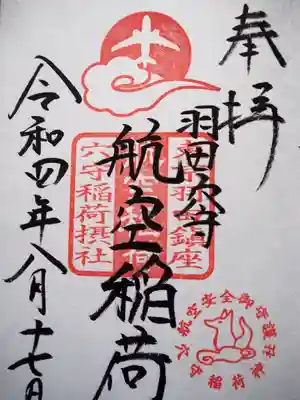 奉拝
羽田穴守
航空稲荷
東京羽田鎮座
航空稲荷
穴守稲荷摂社
航空安全御守護
穴守稲荷神社
令和四年八月十七日